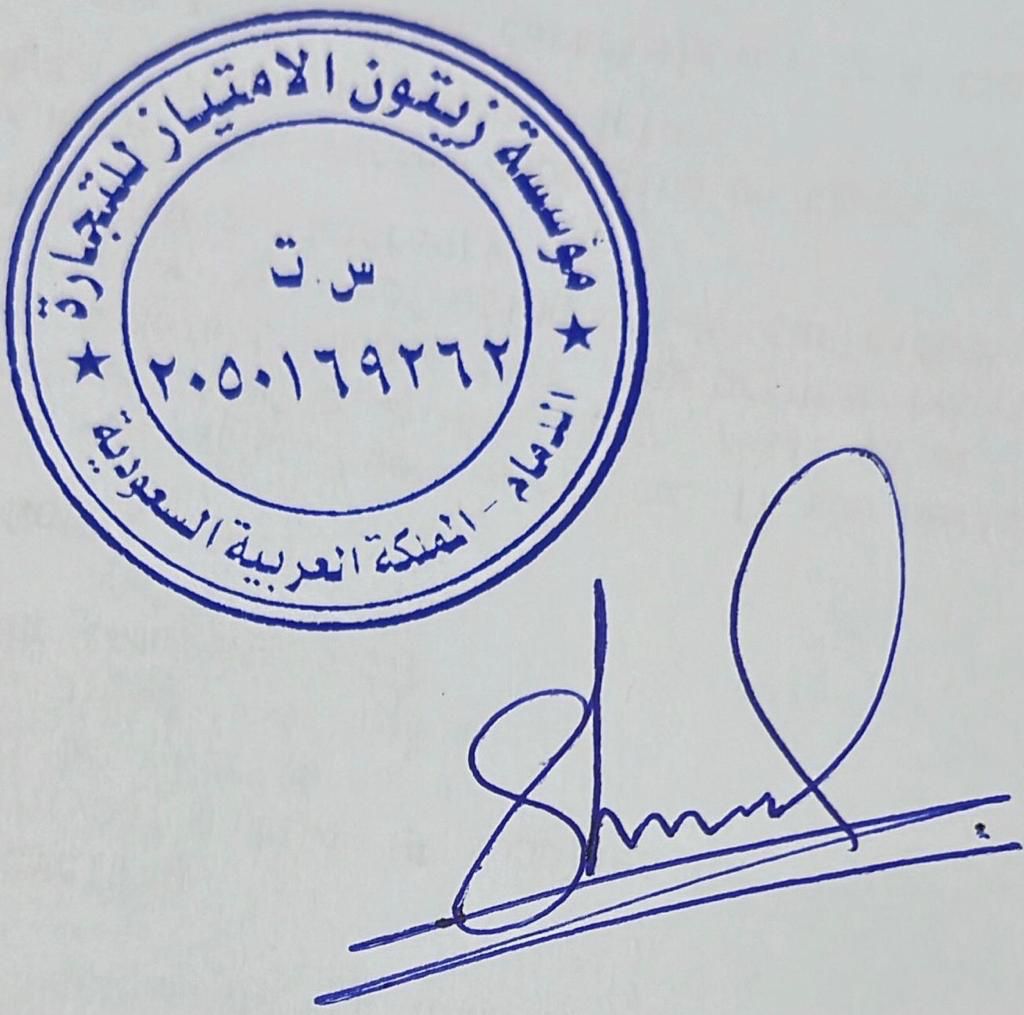 مؤسسة زيتون الامتياز للتجارة
س ت
٢٠٥٠١٦٩٢٦٢
الدمام - المملكة العربية السعودية